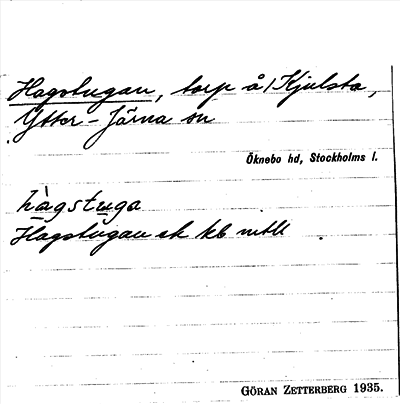 Hagstugan, torp å/Kjulsta,
Ytter-Järna sn
Öknebo hd, Stockholms l.
hàgstuga
Hagstugan ek kb
GÖRAN ZETTERBERG 1935.